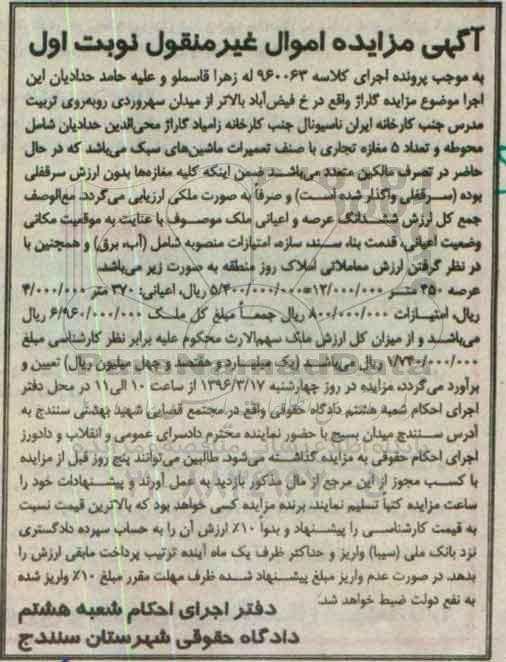 آگهی مزایده اموال غیرمنقول نوبت اول
به موجب پرونده اجرای کلاسه ۹۶۰۰۶۳ له زهرا قاسملو و علیه حامد حدادیان این
اجرا موضوع مزایده گاراژ واقع در خ فیض‌آباد بالاتر از میدان سهروردی روبه‌روی تربیت
مدرس جنب کارخانه ایران ناسیونال جنب کارخانه زامیاد گاراژ محی‌الدین حدادیان شامل
محوطه و تعداد ۵ مغازه تجاری با صنف تعمیرات ماشین‌های سبک می‌باشد که در حال
حاضر در تصرف مالکین متعدد می‌باشند ضمن اینکه کلیه مغازه‌ها بدون ارزش سرقفلی
بوده (سرقفلی واگذار شده است) و صرفاً به صورت ملکی ارزیابی می‌گردد. مع‌الوصف
جمع کل ارزش ششدانگ عرصه و اعیانی ملک موصوف با عنایت به موقعیت مکانی
وضعیت اعیانی، قدمت بنا، سند، سازه، امتیازات منصوبه شامل (آب، برق) و همچنین با
در نظر گرفتن ارزش معاملاتی املاک روز منطقه به صورت زیر می‌باشد.
عرصه ۴۵۰ متر ۱۲/۰۰۰/۰۰۰=۵/۴۰۰/۰۰۰/۰۰۰ ریال، اعیانی: ۳۷۰ متر ۴/۰۰۰/۰۰۰
ریال، امتیازات ۸۰۰/۰۰۰/۰۰۰ ریال جمعاً مبلغ کل ملک ۶/۹۶۰/۰۰۰/۰۰۰ ریال
می‌باشد و از میزان کل ارزش ملک سهم‌الارث محکوم علیه برابر نظر کارشناسی مبلغ
۱/۷۴۰/۰۰۰/۰۰۰ ریال می‌باشد. (یک میلیارد و هفتصد و چهل میلیون ریال) تعیین و
برآورد می‌گردد، مزایده در روز چهارشنبه ۱۳۹۶/۳/۱۷ از ساعت ۱۰ الی ۱۱ در محل دفتر
اجرای احکام شعبه هشتم دادگاه حقوقی واقع در مجتمع قضایی شهید بهشتی سنندج به
آدرس سنندج میدان بسیج با حضور نماینده محترم دادسرای عمومی و انقلاب و دادورز
اجرای احکام حقوقی به مزایده گذاشته می‌شود. طالبین می‌توانند پنج روز قبل از مزایده
با کسب مجوز از این مرجع از مال مذکور بازدید به عمل آورند و پیشنهادات خود را
ساعت مزایده کتباً تسلیم نمایند. برنده مزایده کسی خواهد بود که بالاترین قیمت نسبت
به قیمت کارشناسی را پیشنهاد و بدواً ۱۰٪ ارزش آن را به حساب سپرده دادگستری
نزد بانک ملی (سیبا) واریز و حداکثر ظرف یک ماه آینده ترتیب پرداخت مابقی ارزش را
بدهد. در صورت عدم واریز مبلغ پیشنهاد شده ظرف مهلت مقرر مبلغ ۱۰٪ واریز شده
به نفع دولت ضبط خواهد شد.
دفتر اجرای احکام شعبه هشتم
دادگاه حقوقی شهرستان سنندج